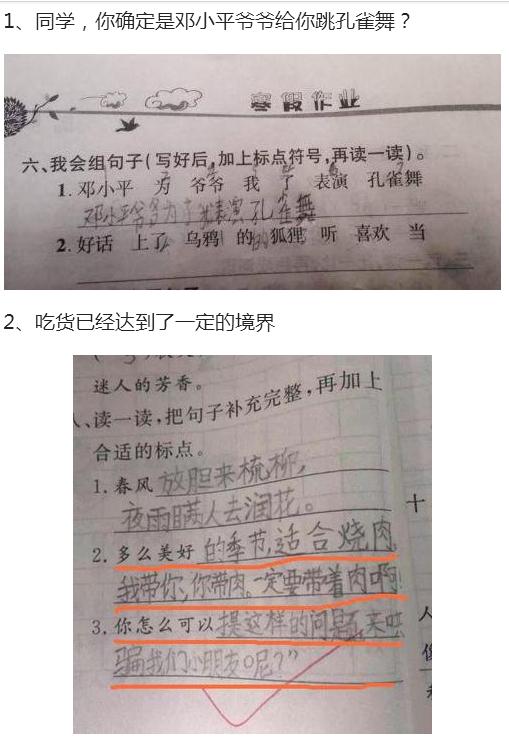 1、同学，你确定是邓小平爷爷给你跳孔雀舞？
寒假作业
六、我会组句子(写好后,加上标点符号,再读一读)。
1. 邓小平 为 爷爷 我 了 表演 孔雀舞
邓小平爷爷为了我表演孔雀舞
2. 好话 上了 乌鸦 的 狐狸 听 喜欢 当
2、吃货已经达到了一定的境界
迷人的芳香。
、读一读,把句子补充完整,再加上
合适的标点。
1. 春风放胆来梳柳,
夜雨瞒人去润花。
十
2. 多么美好的季节,适合烧肉,
我带你,你带肉。一定要带着肉啊!
3. 你怎么可以提这样的问题,来
骗我们小朋友呢?”